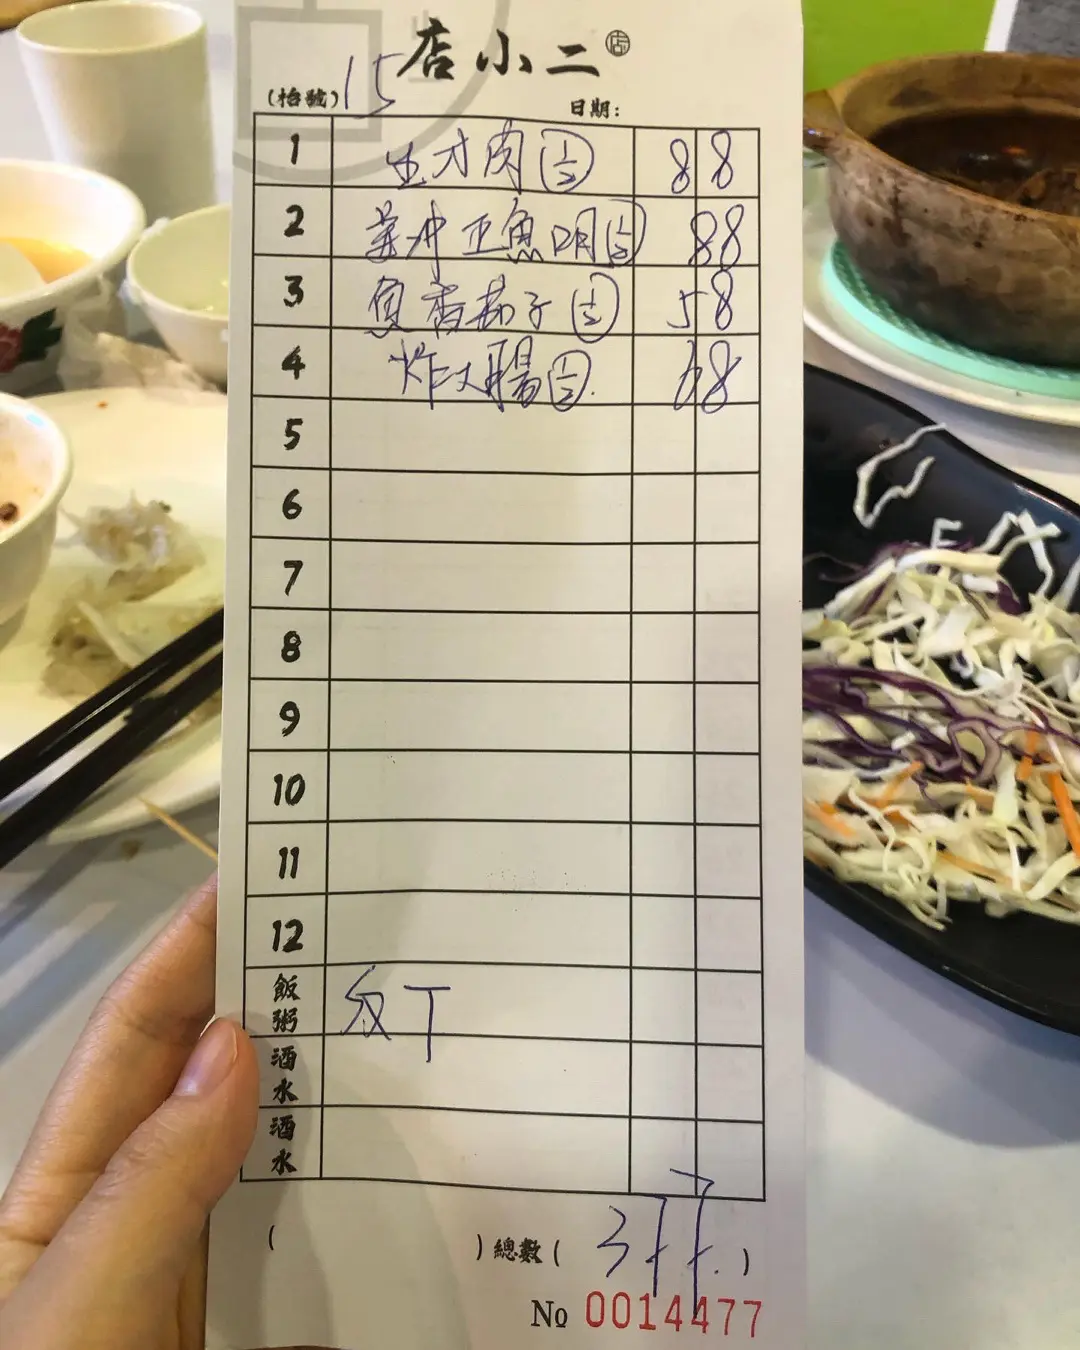 店小二
店
(枱號) 15 日期:
1 生才肉 88
2 魚 88
3 魚香茄子 58
4 炸大腸 68
5
6
7
8
9
10
11
12
飯粥
酒水
酒水
( ) 總數 ( )
No 0014477